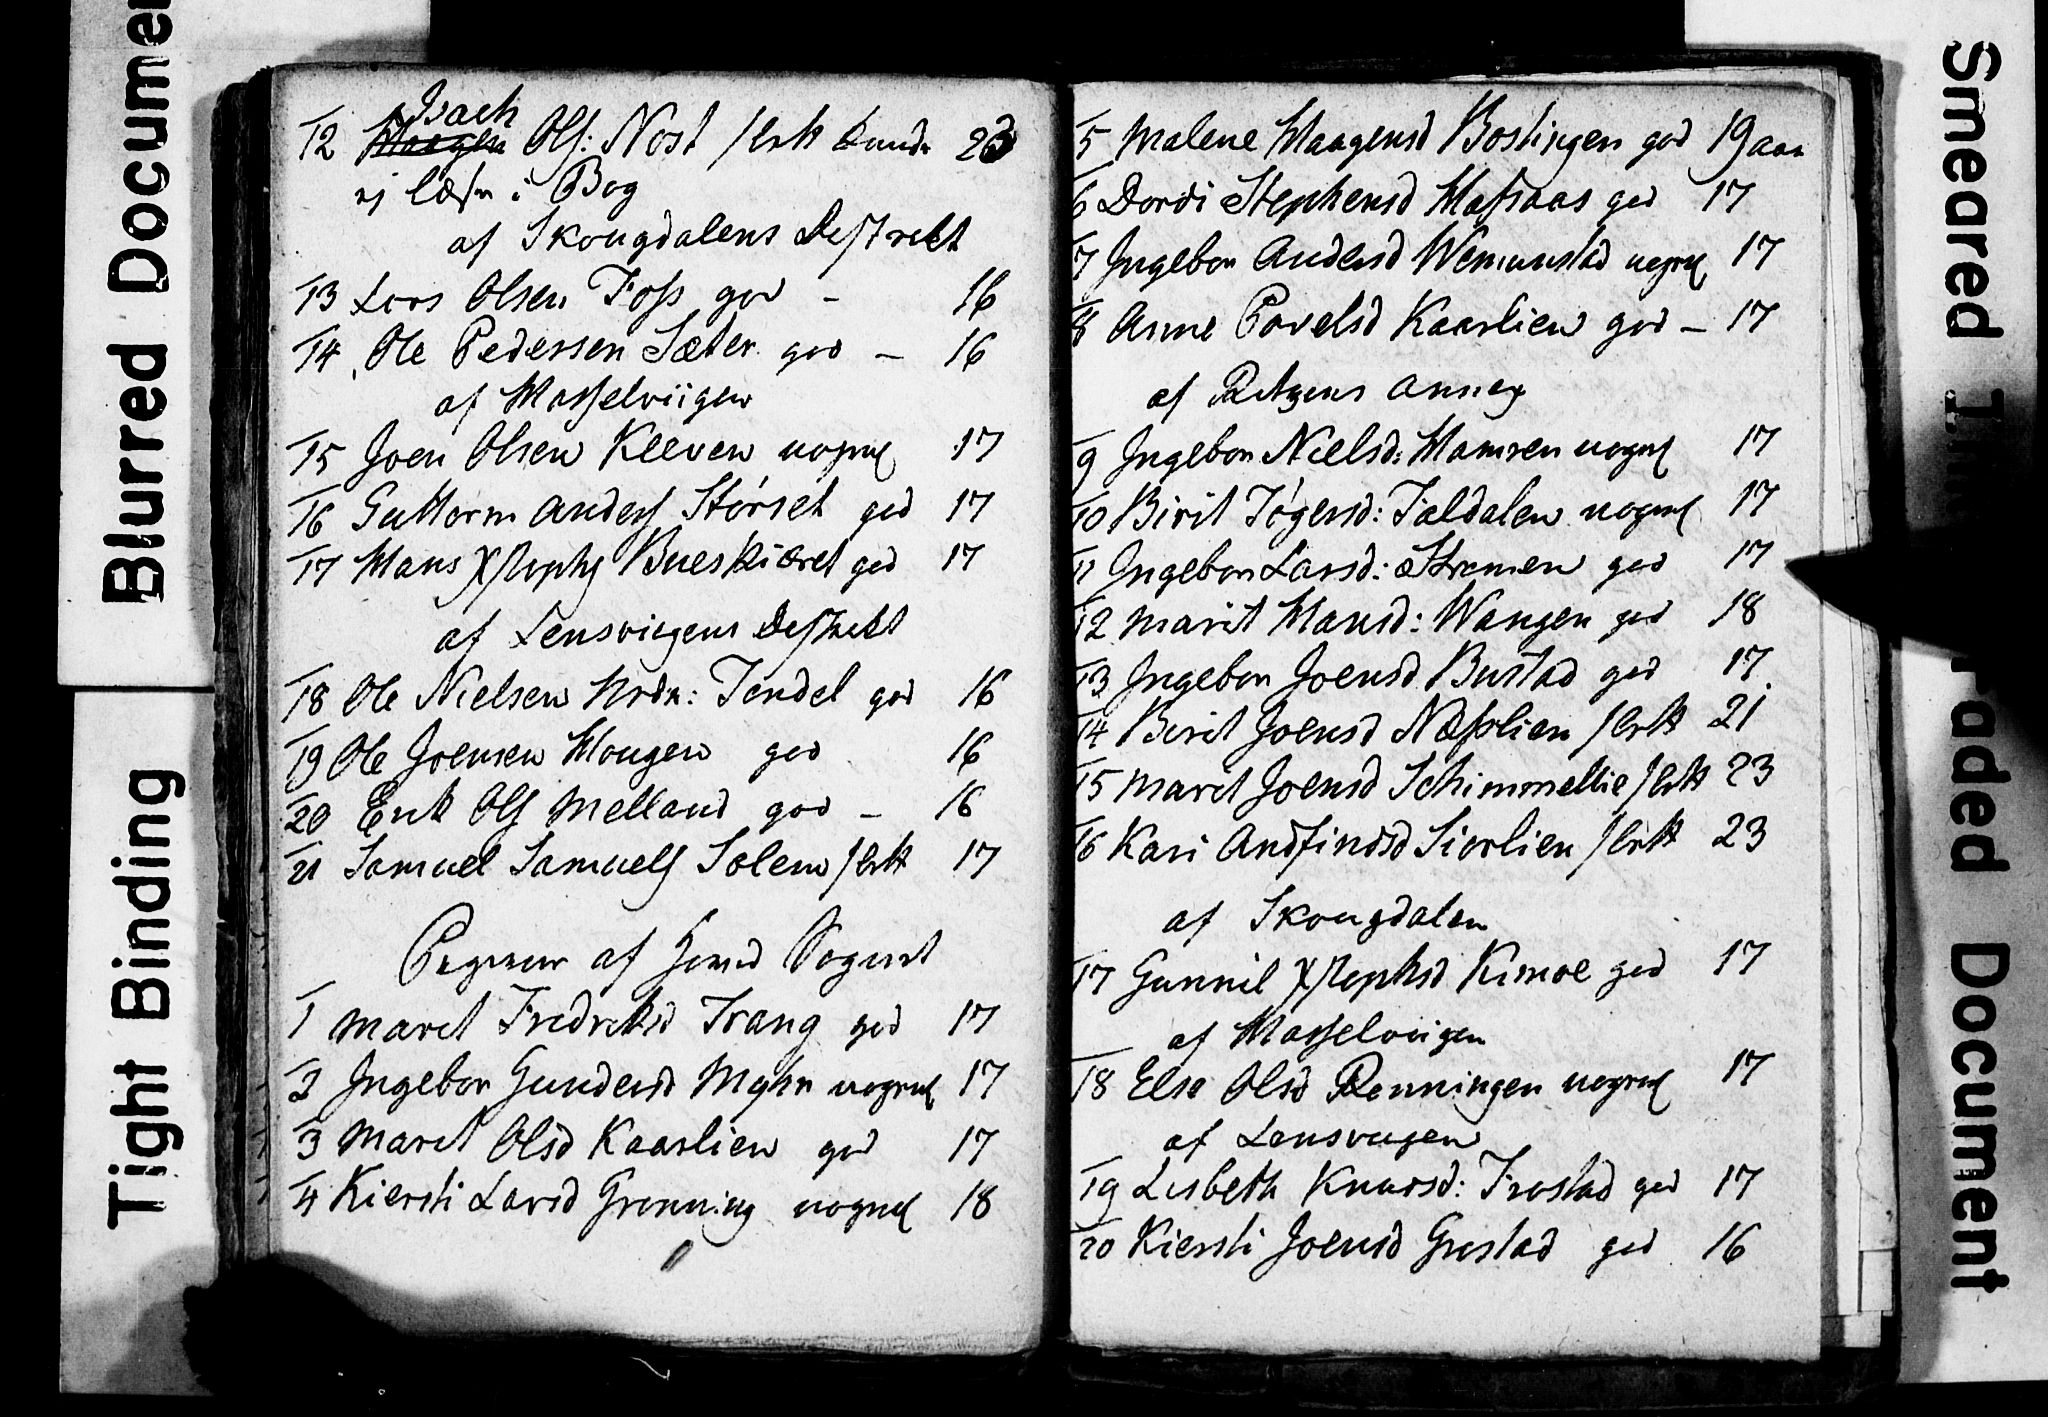 Isach
12 Haagen Ols: Nost slet kunde 23
ej læse i Bog
af Skougdalens Destrikt
13 Lars Olsen Foss god - 16
14 Ole Pedersen Sæter god - 16
af Hasselviigen
15 Joen Olsen Kleven 17
16 Guttorm Anders Størset god 17
17 Hans Bueskiæret god 17
af Lensviigens Destrikt
18 Ole Nielsen Nrdr: Tendel god 16
19 Ole Joensen Hougen god 16
20 Erik Ols Melland god - 16
21 Samuel Samuels Solem slet 17
af Hoved Sognet
1 Maret Fredriksd Trang god 17
2 Ingebor Gundersd Myhr 17
3 Maret Olsd Kaarlien god 17
4 Kiersti Larsd Grønning 18
5 Malene Haagensd Bostingen god 19 aar
6 Dordi Stephensd Hafsaas god 17
7 Ingebor Andersd Wemunstad 17
8 Anne Povelsd Kaarlien god - 17
af Ritzens Annex
9 Ingebor Nielsd: Hamren 17
10 Birit 17
11 Ingebor Larsd: Strømen god 17
12 Marit Hansd: Wangen god 18
13 Ingebor Joensd Bustad god 17
14 Birit Joensd Næsslien slet 21
15 Maret Joensd Schimmellie slet 23
16 Kari Andfindsd Siorlien slet 23
af Skougdalen
17 Gunnil Kimoe god 17
af Hasselviigen
18 Else Olsd Rønningen 17
af Lensviigen
19 Lisbeth Knursd: Frostad god 17
20 Kiersti Joensd Grøstad god 16
Blurred Docume
Tight Binding
Smeared
Faded Document